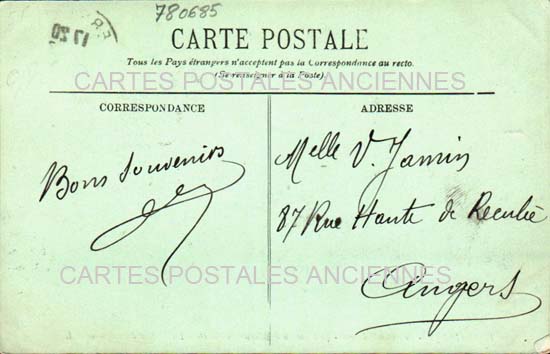 780685
17 20
CARTE POSTALE
Tous les Pays étrangers n'acceptent pas la Correspondance au recto.
(Se renseigner à la Poste)
CARTES POSTALES ANCIENNES
CORRESPONDANCE
ADRESSE
Bons Souvenirs
Melle V. Jamin
87 Rue Haute de Reculée
Angers
CARTES POSTALES ANCIENNES